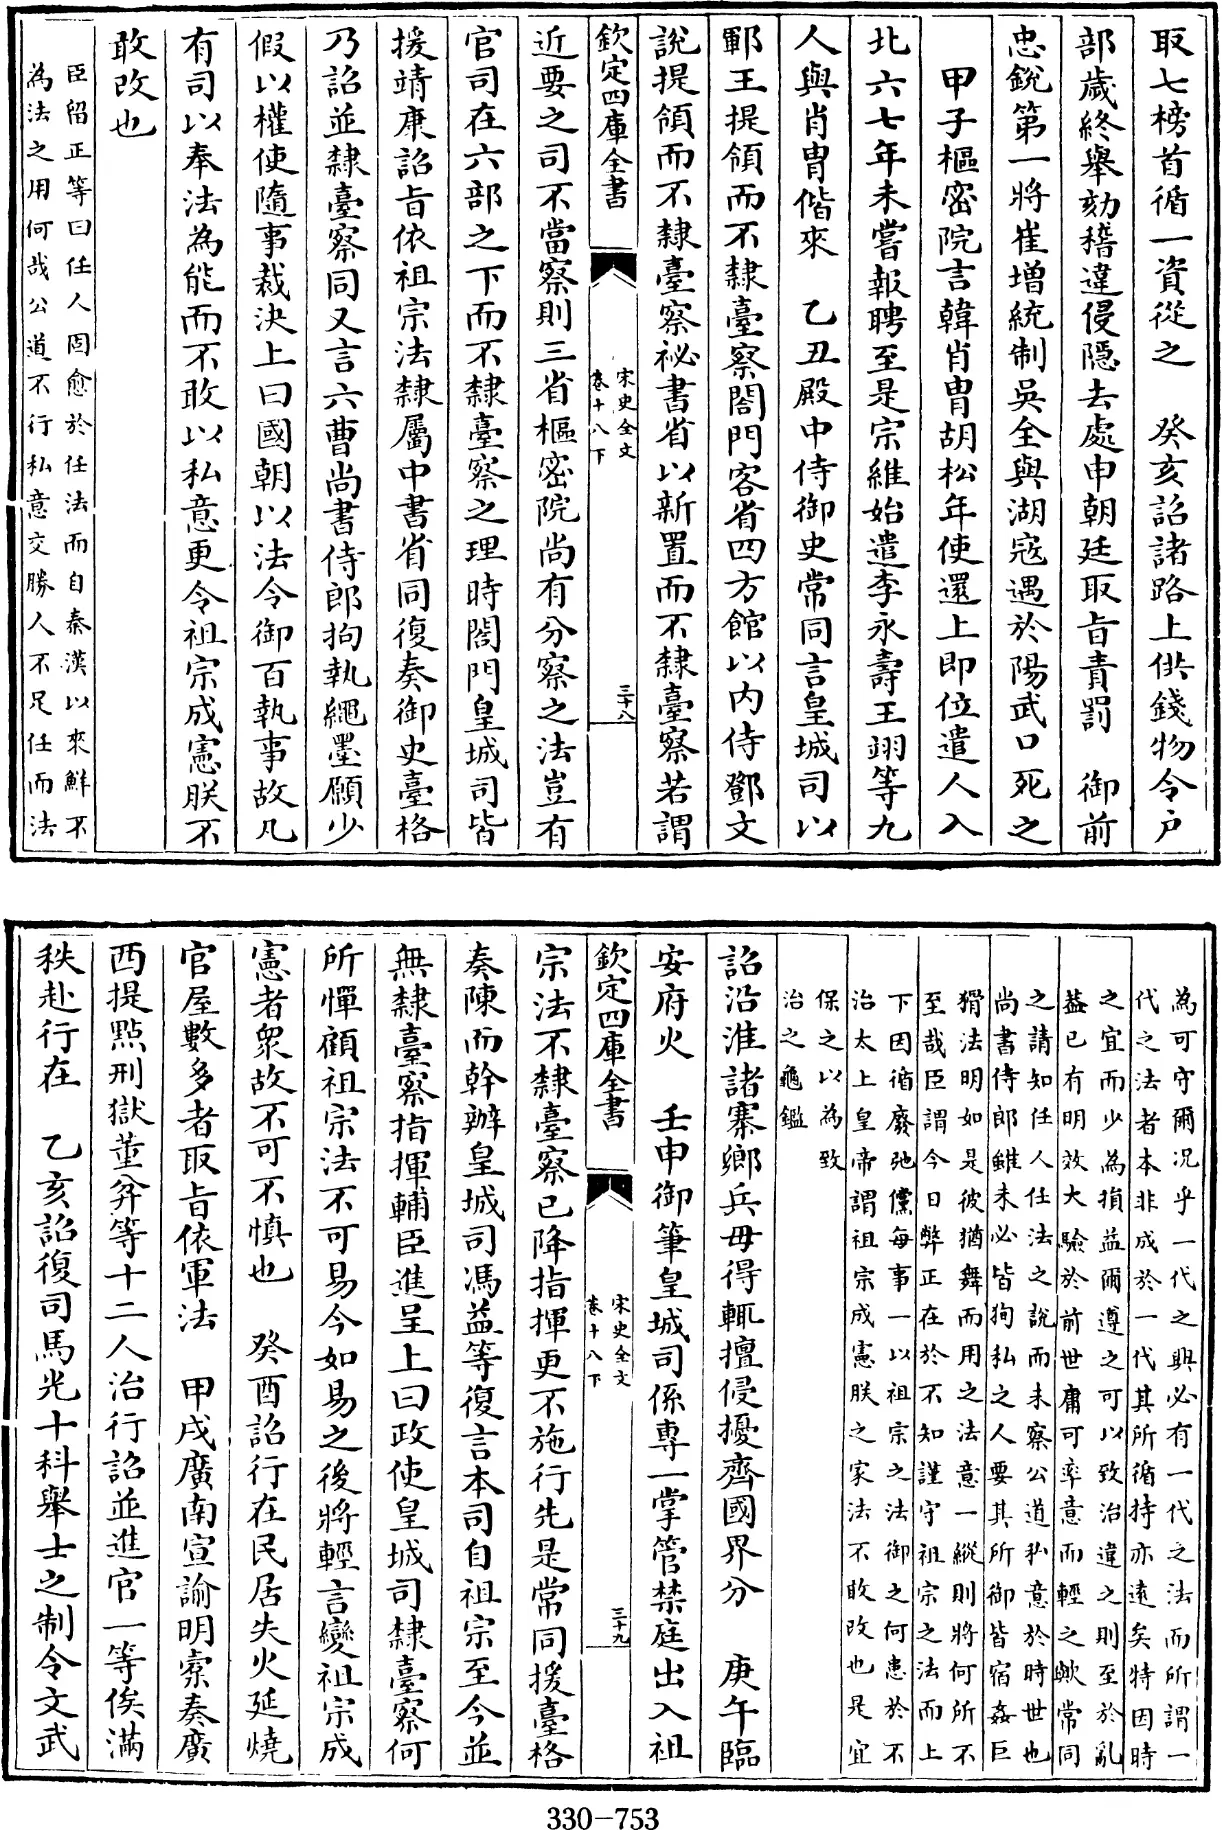 取七榜首循一資從之　癸亥詔諸路上供錢物令户
部歲終舉劾稽違侵隠去處申朝廷取㫖責罰　御前
忠銳第一將崔增統制吳全與湖宼遇於陽武口死之
甲子樞密院言韓肖胄胡松年使還上即位遣人入
北六七年未嘗報聘至是宗維始遣李永壽王翊等九
人與肖胄偕來　乙丑殿中侍御史常同言皇城司以
鄆王提領而不隸臺察閤門客省四方館以内侍鄧文
說提領而不隸臺察祕書省以新置而不隸臺察若謂
欽定四庫全書
宋史全文
卷十八下
三十八
近要之司不當察則三省樞密院尚有分察之法豈有
官司在六部之下而不隸臺察之理時閤門皇城司皆
援靖康詔㫖依祖宗法隸屬中書省同復奏御史臺格
乃詔並隸臺察同又言六曹尚書侍郎拘執繩墨願少
假以權使隨事裁決上曰國朝以法令御百執事故凡
有司以奉法為能而不敢以私意更令祖宗成憲朕不
敢改也
臣留正等曰任人固愈於任法而自秦漢以來鮮不
為法之用何哉公道不行私意交勝人不足任而法
為可守爾况乎一代之興必有一代之法而所謂一
代之法者本非成於一代其所循持亦逺矣特因時
之宜而少為損益爾遵之可以致治違之則至於亂
葢已有明效大驗於前世庸可率意而輕之歟常同
之請知任人任法之說而未察公道私意於時世也
尚書侍郎雖未必皆狥私之人要其所御皆宿姦巨
猾法明如是彼猶舞而用之法意一縱則將何所不
至哉臣謂今日弊正在於不知謹守祖宗之法而上
下因循廢弛儻每事一以祖宗之法御之何患於不
治太上皇帝謂祖宗成憲朕之家法不敢改也是宜
保之以為致
治之龜鑑
詔沿淮諸寨鄉兵毋得輒擅侵擾齊國界分　庚午臨
安府火　壬申御筆皇城司係專一掌管禁庭出入祖
欽定四庫全書
宋史全文
卷十八下
三十九
宗法不隸臺察已降指揮更不施行先是常同援臺格
奏陳而幹辦皇城司馮益等復言本司自祖宗至今並
無隸臺察指揮輔臣進呈上曰政使皇城司隸臺察何
所憚顧祖宗法不可易今如易之後將輕言變祖宗成
憲者衆故不可不慎也　癸酉詔行在民居失火延燒
官屋數多者取㫖依軍法　甲戌廣南宣諭明橐奏廣
西提點刑獄董弅等十二人治行詔並進官一等俟滿
秩赴行在　乙亥詔復司馬光十科舉士之制令文武
330-753